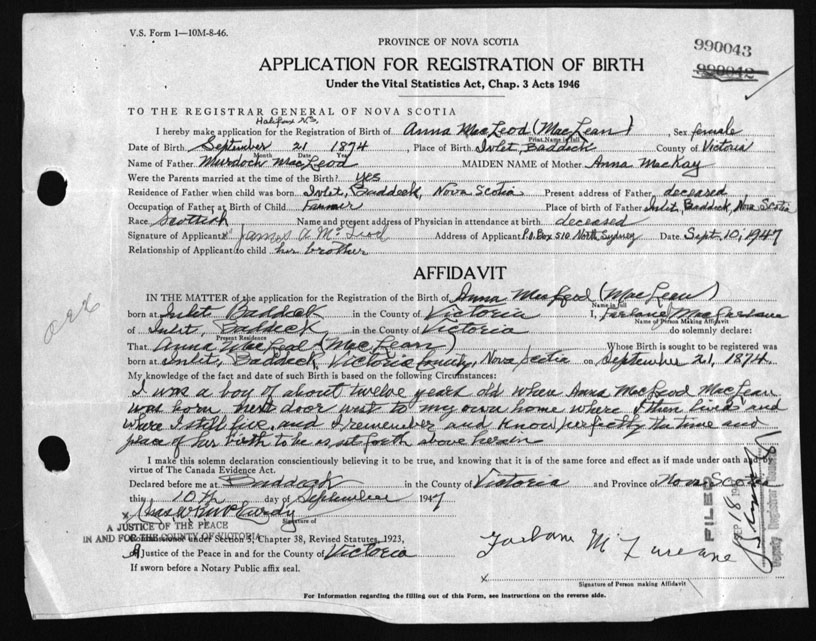 V.S. Form 1—10M-8-46.
990043
990042
PROVINCE OF NOVA SCOTIA
APPLICATION FOR REGISTRATION OF BIRTH
Under the Vital Statistics Act, Chap. 3 Acts 1946
TO THE REGISTRAR GENERAL OF NOVA SCOTIA
Halifax N.S.
I hereby make application for the Registration of Birth of Anna MacLeod (MacLean), Sex female
Print Name in full
Date of Birth September 21 1874, Place of Birth Inlet, Baddeck County of Victoria
Month Date Year
Name of Father Murdoch MacLeod MAIDEN NAME of Mother Anna MacKay
Were the Parents married at the time of the Birth? yes
Residence of Father when child was born Inlet, Baddeck, Nova Scotia Present address of Father deceased
Occupation of Father at Birth of Child Farmer Place of birth of Father Inlet, Baddeck, Nova Scotia
Race Scottish Name and present address of Physician in attendance at birth deceased
Signature of Applicant James A McLeod Address of Applicant P.O. Box 510 North Sydney Date Sept. 10, 1947
Relationship of Applicant to child her brother
AFFIDAVIT
IN THE MATTER of the application for the Registration of the Birth of Anna MacLeod (MacLean)
Name in full
born at Inlet Baddeck in the County of Victoria I, Farlane MacFarlane
Name of Person Making Affidavit
of Inlet, Baddeck in the County of Victoria do solemnly declare:
Present Residence
That Anna MacLeod (MacLean) Whose Birth is sought to be registered was
born at Inlet, Baddeck, Victoria County, Nova Scotia on September 21, 1874.
My knowledge of the fact and date of such Birth is based on the following Circumstances:
I was a boy of about twelve years old when Anna MacLeod MacLean
was born next door west to my own home where I then lived and
where I still live, and I remember and know perfectly the time and
place of her birth to be as set forth above herein
I make this solemn declaration conscientiously believing it to be true, and knowing that it is of the same force and effect as if made under oath and by
virtue of The Canada Evidence Act.
Declared before me at Baddeck in the County of Victoria and Province of Nova Scotia
this 10th day of September 1947
Signature of
A JUSTICE OF THE PEACE
IN AND FOR THE COUNTY OF VICTORIA
under Section 5, Chapter 38, Revised Statutes, 1923,
A Justice of the Peace in and for the County of Victoria
If sworn before a Notary Public affix seal.
Farlane McFarlane
x
Signature of Person making Affidavit
FILED
SEP 18 19
Deputy Registrar
For Information regarding the filling out of this Form, see instructions on the reverse side.